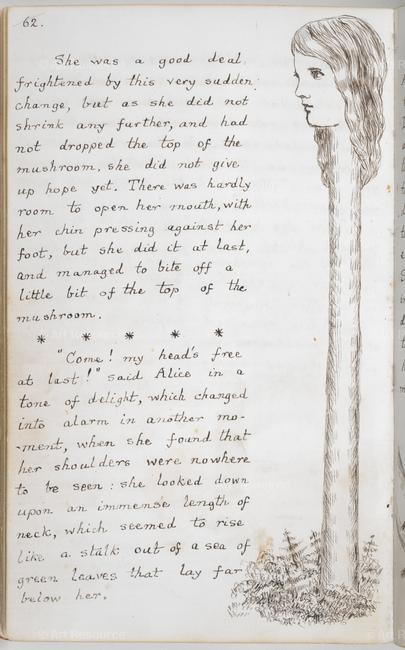 62.
She was a good deal
frightened by this very sudden
change, but as she did not
shrink any further, and had
not dropped the top of the
mushroom, she did not give
up hope yet. There was hardly
room to open her mouth, with
her chin pressing against her
foot, but she did it at last,
and managed to bite off a
little bit of the top of the
mushroom.
* * * * *
"Come! my head's free
at last!" said Alice in a
tone of delight, which changed
into alarm in another mo-
-ment, when she found that
her shoulders were nowhere
to be seen: she looked down
upon an immense length of
neck, which seemed to rise
like a stalk out of a sea of
green leaves that lay far
below her.
© Art Resource
© Art Resource